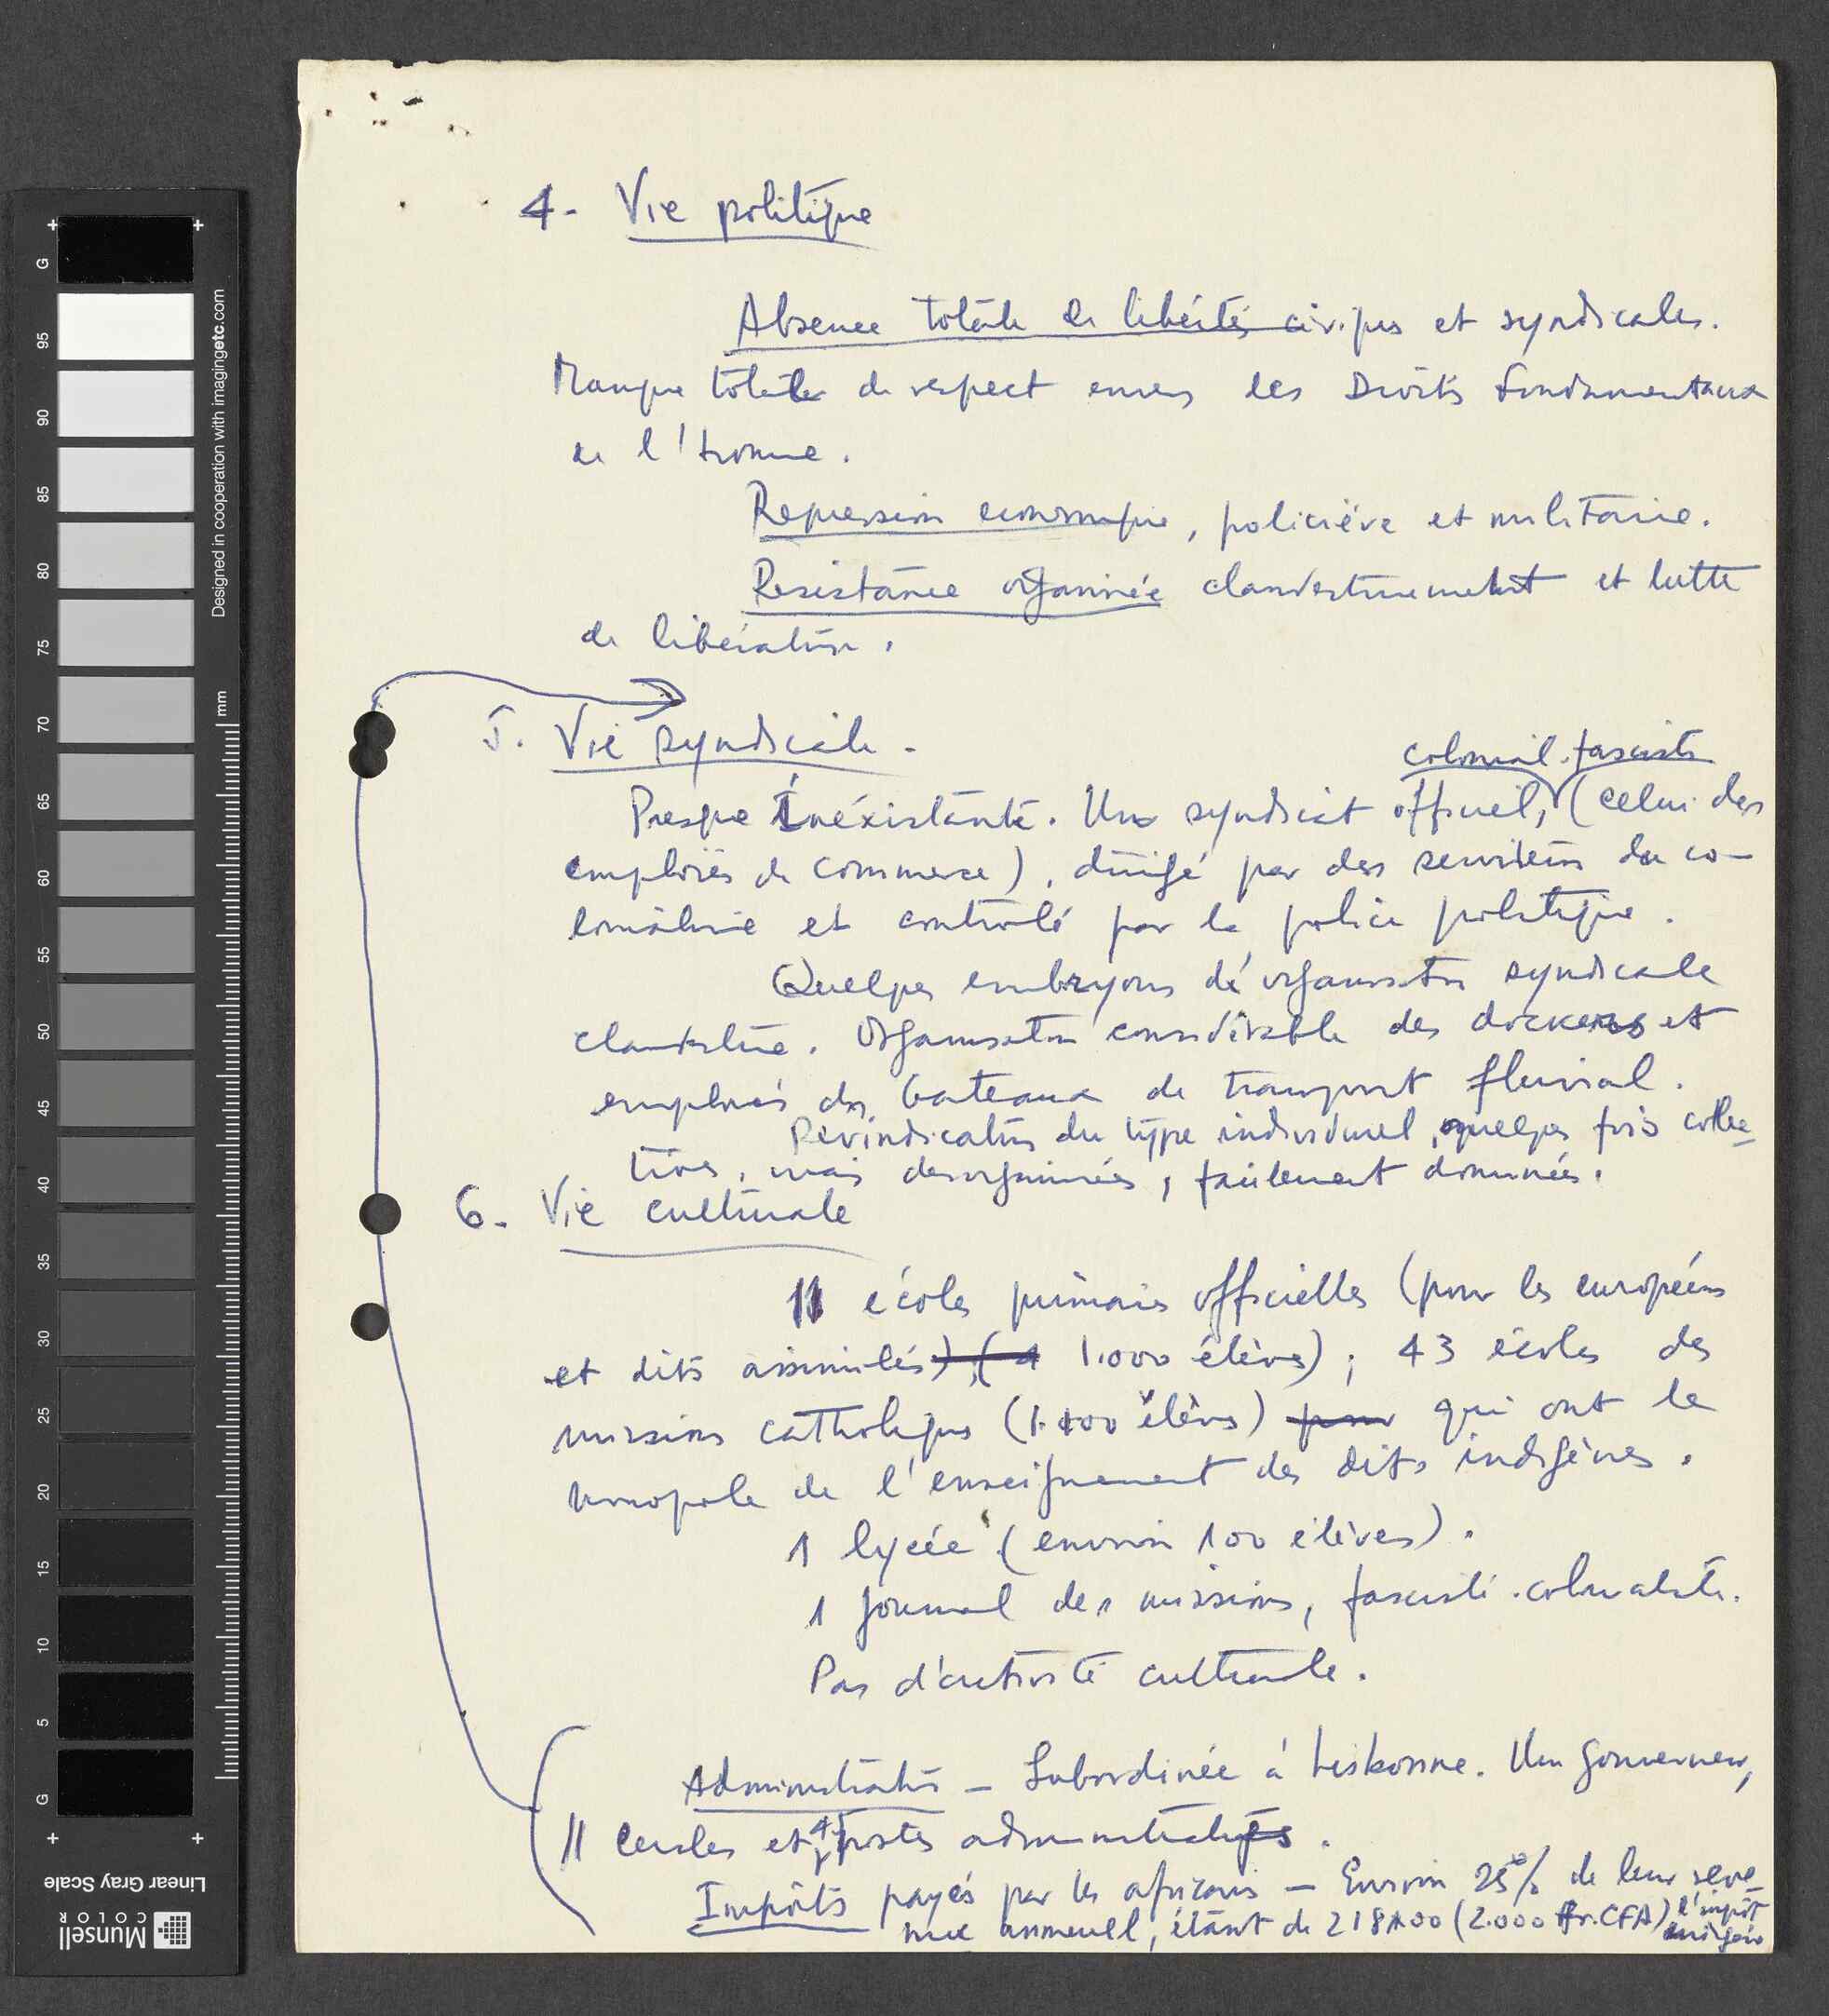 4. Vie politique
Absence totale de libertés civiques et syndicales.
Manque totale de respect envers les Droits fondamentaux
de l'homme.
Repression economique, policiére et militaire.
Resistance organisée clandestinement et lutte
de libération.
5. Vie syndicale.
colonial-fasciste
Presque inéxistante. Un syndicat officiel, (celui des
employés de commerce), dirigé par des serviteurs du co-
lonialisme et controlé par la police politique.
Quelques embryons dé organisation syndicale
clandestine. Organisation considérable des dockers et
employés des bateaux de transport fluvial.
Revindications du type individuel, quelques fois collec-
tives, mais desorganisées, facilement dominées.
6. Vie culturale
11 écoles primaires officielles (pour les européens
et dits assimilés), ( 1.000 élèves); 43 écoles des
missions catholiques (1.100 élèves) pour qui ont le
monopole de l'enseignement des dits indigènes.
1 lycée (environ 100 élèves).
1 journal des missions, fasciste-colonialiste.
Pas d'activité culturale.
Administration - Subordinée à Lisbonne. Un gouverneur,
11 cercles et postes administratifs.
Impôts payés par les africains - Environ 25% de leur reve-
nue annuell, étant de 218$00 (2.000 Fr.CFA) l'impôt
indigène
G 95 90 85 80 75 70 65 60 55 50 45 40 35 30 25 20 15 10 5 G
mm
Designed in cooperation with imagingetc.com
Linear Gray Scale
Munsell
COLOR